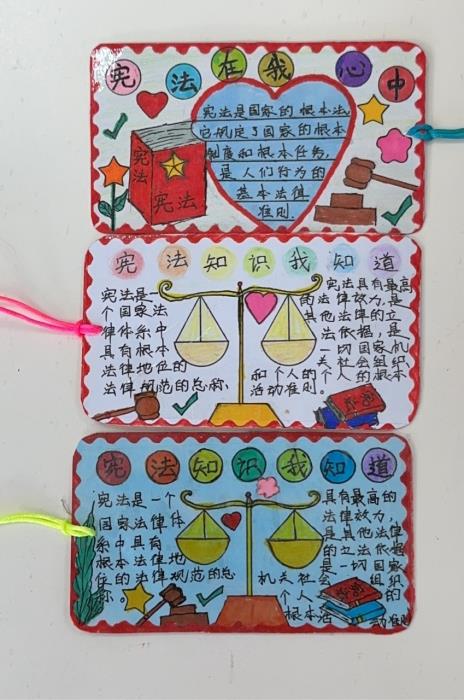 宪法在我心中
宪法是国家的根本法,
它规定了国家的根本
制度和根本任务,
是人们行为的
基本法律
准则.
宪法
宪法
宪法知识我知道
宪法是一
个国家法
律体系中
具有根本
法律地位的
法律规范的总称,
宪法具有最高
的法律效力,是
其他法律的立
法依据,是
一切国家机
关社会组织
和个人的个人的根本
活动准则。
宪法知识我知道
宪法是一个
国家法律体
系中具有
根本法律地
位的法律规范的总
称。
具有最高的
法律效力,
是其他法律
的立法依据
是一切国家
机关社会组织
个人的
根本活动准